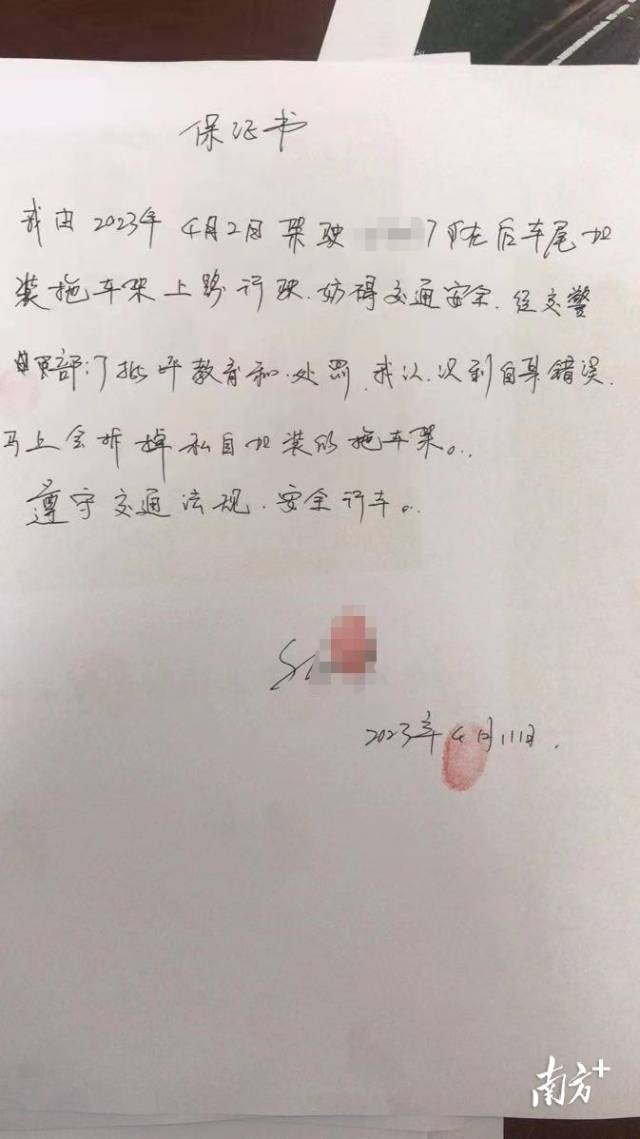 保证书
我由2023年4月2日驾驶 7 后车尾加
装拖车架上路行驶.妨碍交通安全.经交警
部门批评教育和处罚.我认识到自身错误.
马上会拆掉私自加装的拖车架。
遵守交通法规.安全行车。
2023年4月11日.
南方+